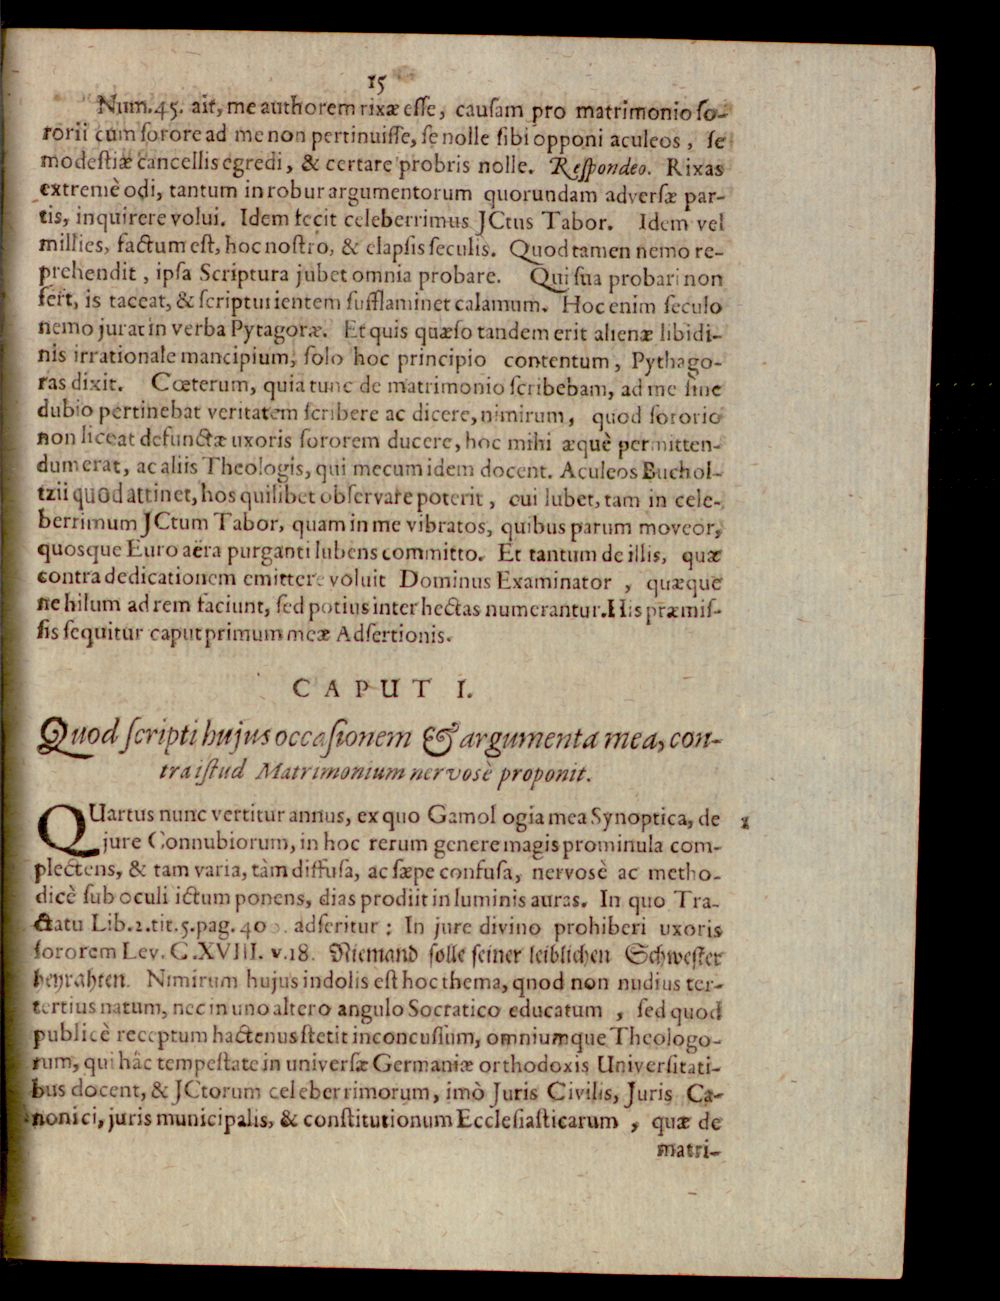 15
Num. 45. ait, me authorem rixæ esse, causam pro matrimonio so-
rorii cum sorore ad me non pertinuisse, se nolle sibi opponi aculeos, se
modestiæ cancellis egredi, & certare probris nolle. Respondeo. Rixas
extremè odi, tantum in robur argumentorum quorundam adversæ par-
tis, inquirere volui. Idem fecit celeberrimus JCtus Tabor. Idem vel
millies, factum est, hoc nostro, & elapsis seculis. Quod tamen nemo re-
prehendit, ipsa Scriptura jubet omnia probare. Qui sua probari non
fert, is taceat, & scripturientem sufflaminet calamum. Hoc enim seculo
nemo jurat in verba Pytagoræ. Et quis quæso tandem erit alienæ libidi-
nis irrationale mancipium, solo hoc principio contentum, Pythago-
ras dixit. Cœterum, quia tunc de matrimonio scribebam, ad me sine
dubio pertinebat veritatem scribere ac dicere, nimirum, quod sororio
non liceat defunctæ uxoris sororem ducere, hoc mihi æquè permitten-
dum erat, ac aliis Theologis, qui mecum idem docent. Aculeos Buchol-
tzii quod attinet, hos quilibet observare poterit, cui lubet, tam in cele-
berrimum JCtum Tabor, quam in me vibratos, quibus parum moveor,
quosque Euro aëra purganti lubens committo. Et tantum de illis, quæ
contra dedicationem emittere voluit Dominus Examinator, quæque
ne hilum ad rem faciunt, sed potius inter hectas numerantur. His præmis-
sis sequitur caput primum meæ Adsertionis.
CAPUT I.
Quod scripti hujus occasionem & argumenta mea, con-
tra istud Matrimonium nervosè proponit.
QUartus nunc vertitur annus, ex quo Gamol ogia mea Synoptica, de 1
jure Connubiorum, in hoc rerum genere magis prominula com-
plectens, & tam varia, tàm diffusa, ac sæpe confusa, nervosè ac metho-
dicè sub oculi ictum ponens, dias prodiit in luminis auras. In quo Tra-
ctatu Lib. 2. tit. 5. pag. 40. adseritur: In jure divino prohiberi uxoris
sororem Lev. C. XVIII. v. 18. Niemand solle seiner leiblichen Schwester
heyrahten. Nimirum hujus indolis est hoc thema, qnod non nudius ter-
tertius natum, nec in uno altero angulo Socratico educatum, sed quod
publicè receptum hactenus stetit inconcussum, omniumque Theologo-
rum, qui hâc tempestate in universæ Germaniæ orthodoxis Universitati-
bus docent, & JCtorum celeberrimorum, imò Juris Civilis, Juris Ca-
nonici, juris municipalis, & constitutionum Ecclesiasticarum, quæ de
matri-